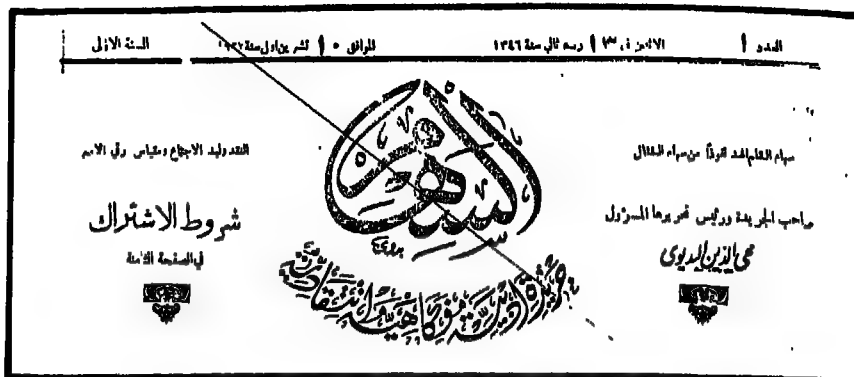 العدد ١
الاثنين في ١٣ ربيع ثاني سنة ١٣٤٦
الموافق ١٠ تشرين اول سنة ١٩٢٧
السنة الاولى
سهام القلم اشد نفوذاً من سهام القتال
صاحب الجريدة ورئيس تحريرها المسؤول
محي الدين البديوي
السهام
جريدة ادبية فكاهية انتقادية
النقد وليد الاجتماع ومقياس رقي الامم
شروط الاشتراك
في الصفحة الثامنة